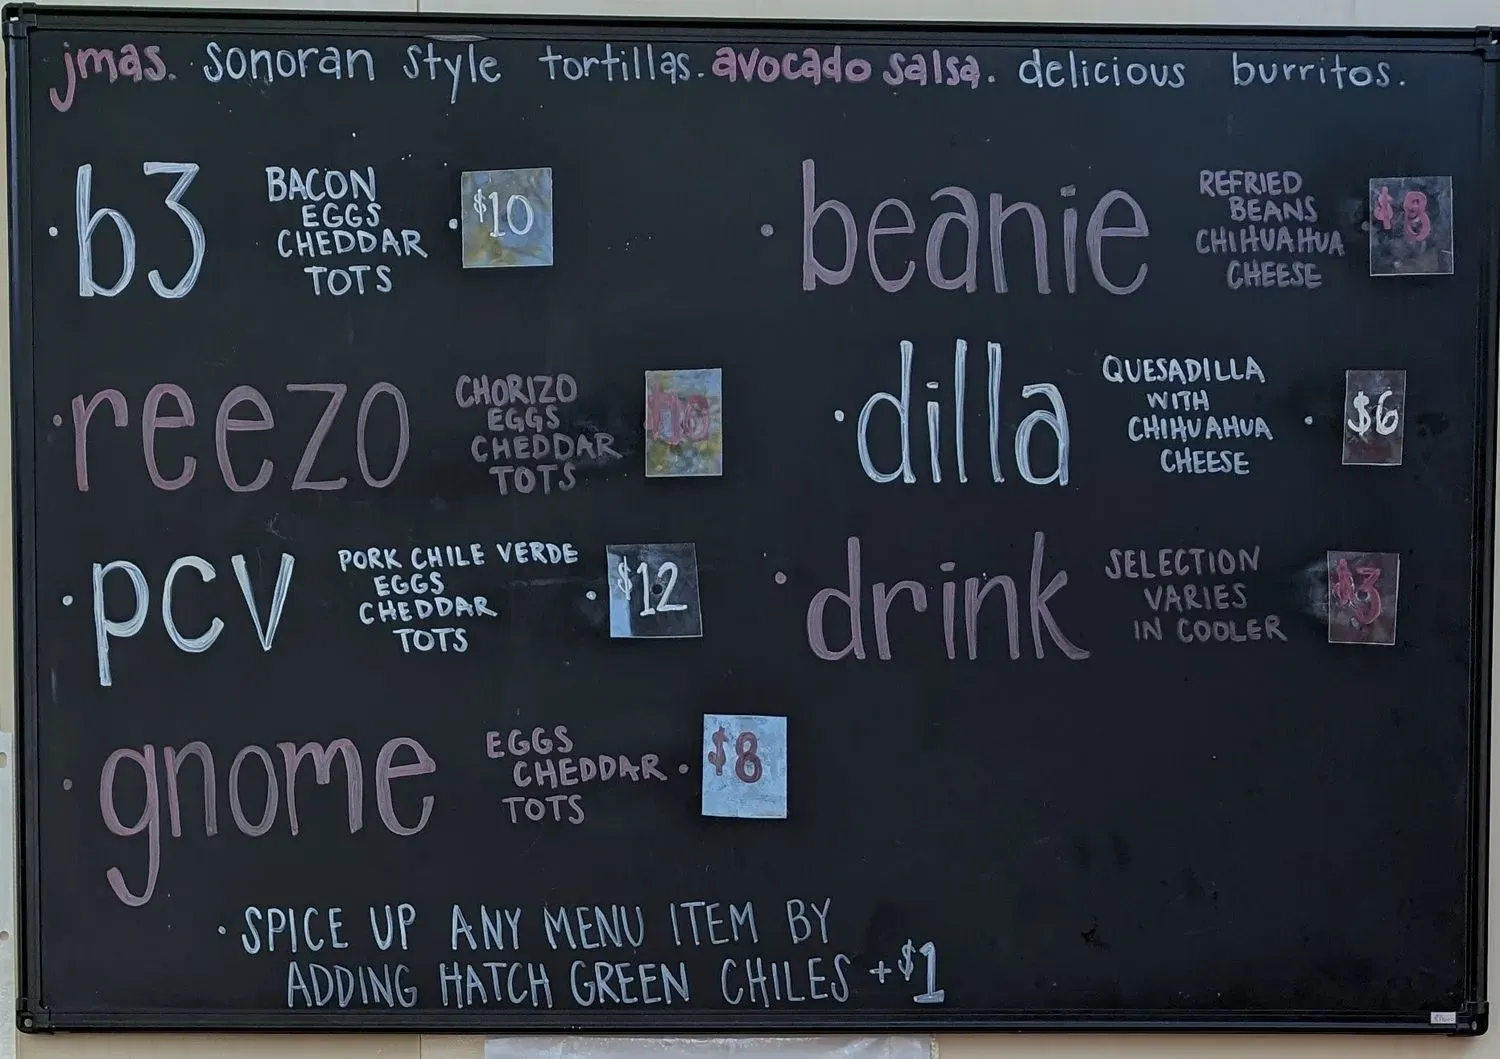 jmas. sonoran style tortillas. avocado salsa. delicious burritos.
· b3
BACON
EGGS
CHEDDAR
TOTS
· $10
· reezo
CHORIZO
EGGS
CHEDDAR
TOTS
· pcv
PORK CHILE VERDE
EGGS
CHEDDAR
TOTS
· $12
· gnome
EGGS
CHEDDAR
TOTS
· $8
· beanie
REFRIED
BEANS
CHIHUAHUA
CHEESE
· $8
· dilla
QUESADILLA
WITH
CHIHUAHUA
CHEESE
· $6
· drink
SELECTION
VARIES
IN COOLER
$3
· SPICE UP ANY MENU ITEM BY
ADDING HATCH GREEN CHILES +$1